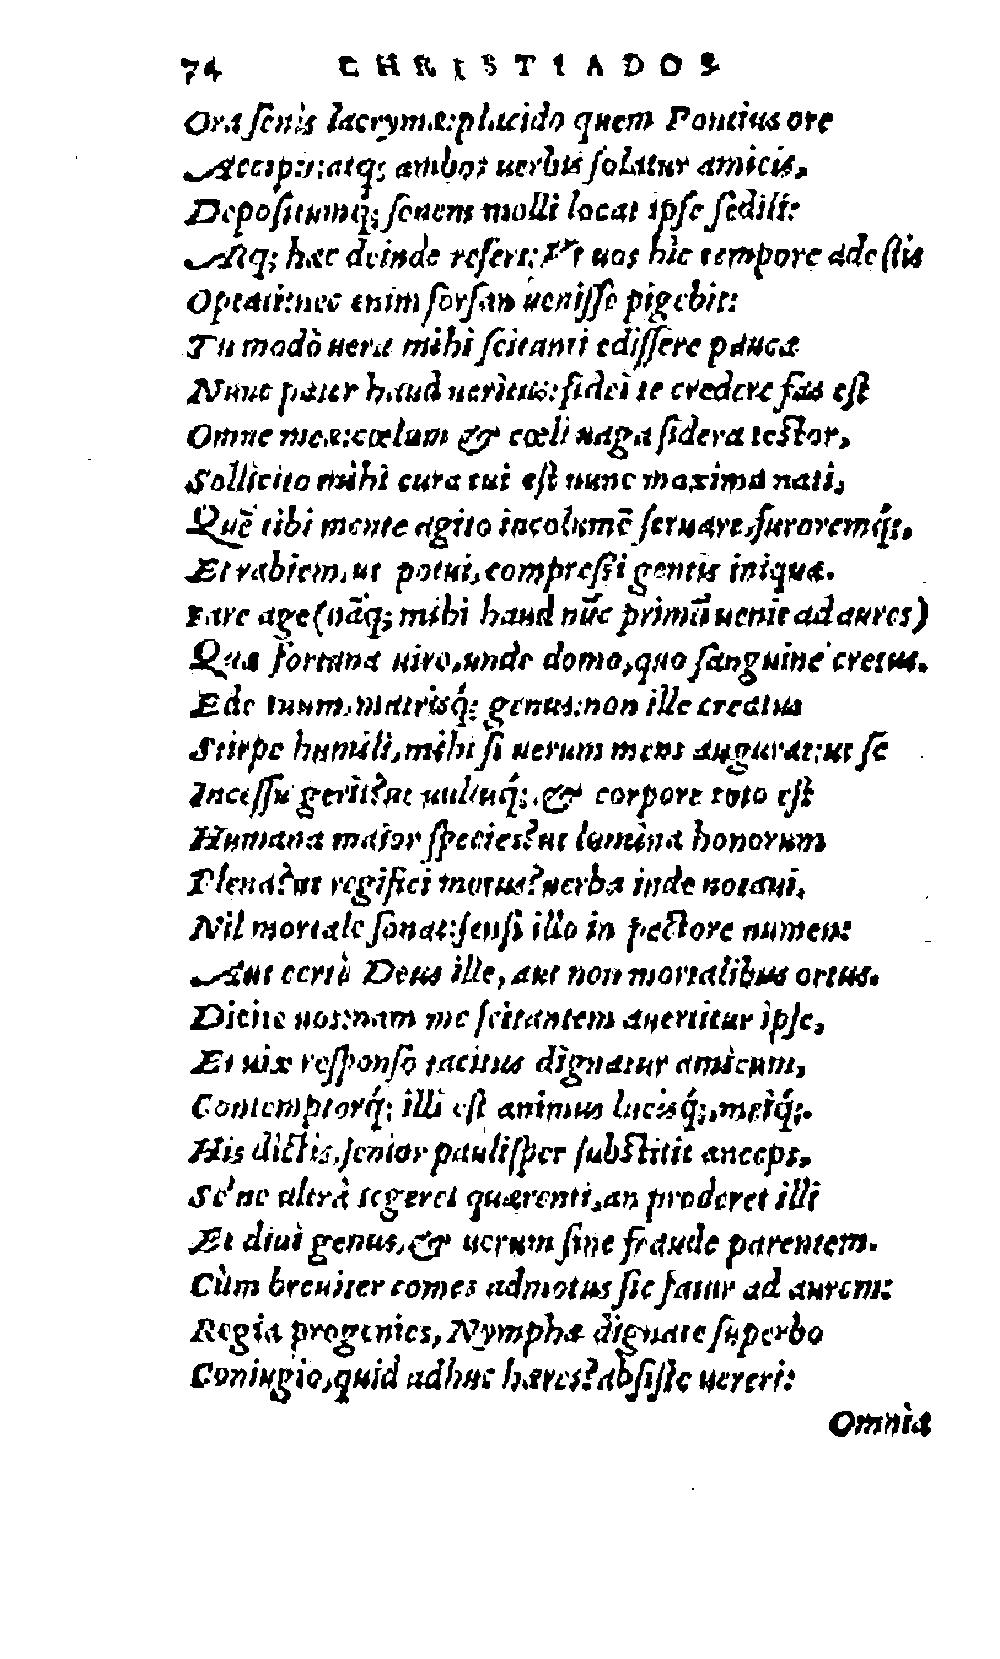 74 CHRISTIADOS
Ora senis lacrymæ:placido quem Pontius ore
Accipit:atq; ambos uerbis solatur amicis,
Depositumq; senem molli locat ipse sedili:
Atq; hæc deinde refert: Vt uos hîc tempore adestis
Optati:nec enim forsan uenisse pigebit:
Tu modò uera mihi scitanti edissere pauca
Nunc pater haud ueritus:fidei te credere fas est
Omne meæ:cœlum & cœli uaga sidera testor,
Sollicito mihi cura tui est nunc maxima nati,
Quē tibi mente agito incolumē seruare,furoremq́;.
Et rabiem,ut potui,compressi gentis iniquæ.
Fare age(nāq; mihi haud nūc primū uenit ad aures)
Quæ fortuna uiro,unde domo,quo sanguine cretus.
Ede tuum,matrisq́; genus:non ille creatus
Stirpe humili,mihi si uerum mens augurat:ut se
Incessu gerit?ut uultuq́;,& corpore toto est
Humana maior species?ut lumina honorum
Plena?ut regifici motus?uerba inde notaui,
Nil mortale sonat:sensi illo in pectore numen:
Aut certè Deus ille,aut non mortalibus ortus.
Dicite uos:nam me scitantem auertitur ipse,
Et uix responso tacitus dignatur amicum,
Contemptorq́; illi est animus lucisq́;,meiq́;.
His dictis,senior paulisper substitit anceps,
Se'ne altrà tegeret quærenti,an proderet illi
Et diui genus,& uerum sine fraude parentem.
Cùm breuiter comes admotus sic fatur ad aurem:
Regia progenies,Nymphæ dignate superbo
Coniugio,quid adhuc hæres?absiste uereri:
Omnia